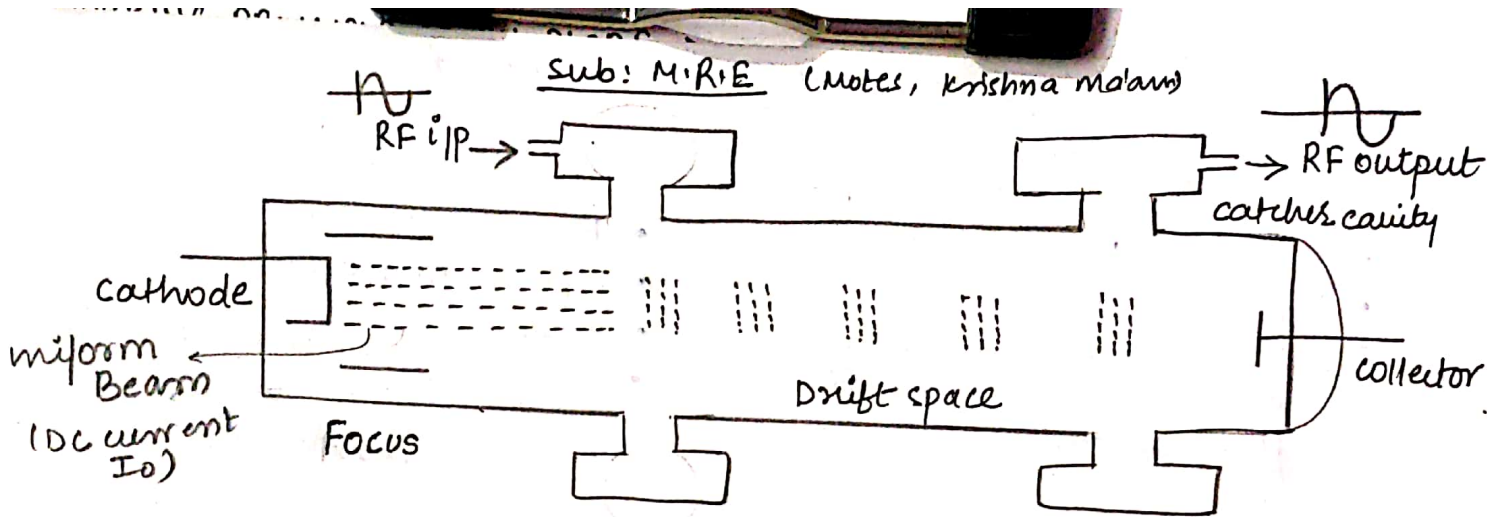 Sub: M.R.E (Notes, Krishna ma'am)
RF i/p
RF output
catches cavity
cathode
miform
Beam
(DC current
Io)
Focus
Drift space
collector